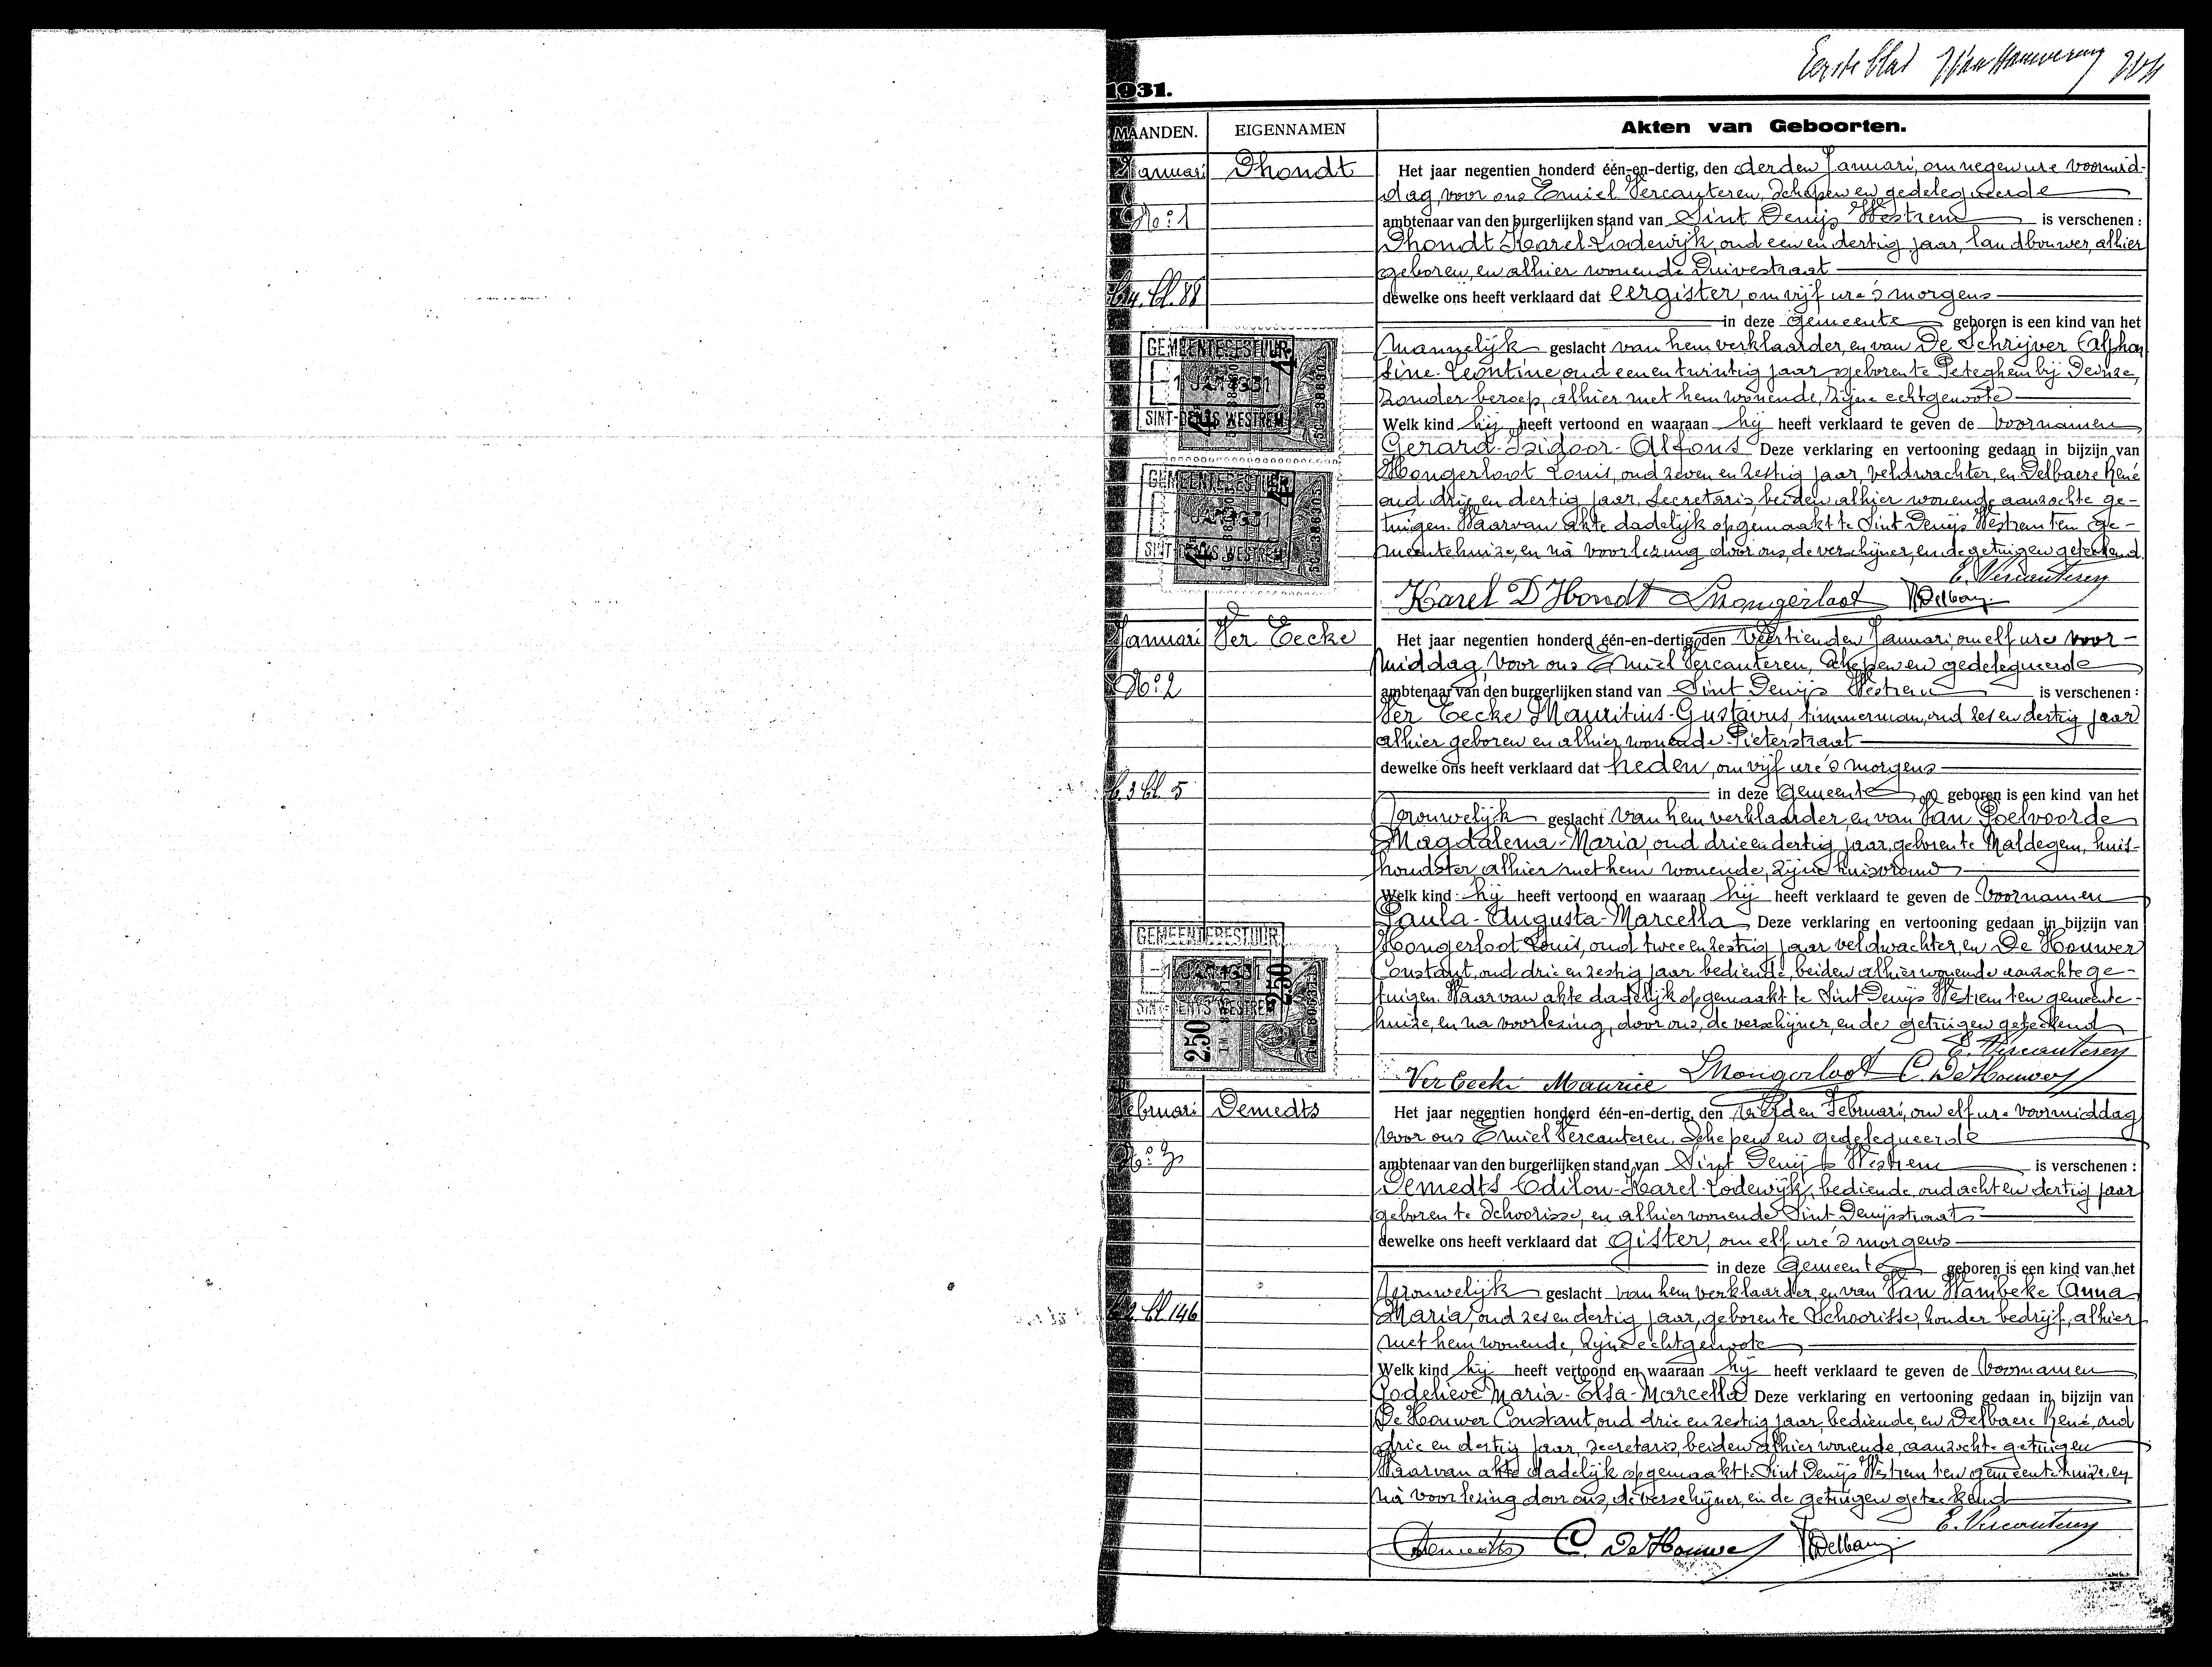 Eerste blad
1931.
MAANDEN. EIGENNAMEN Akten van Geboorten.
Januari Dhondt Het jaar negentien honderd één-en-dertig, den derden Januari, om negen ure voormid-
dag, voor ons Emiel Vercauteren, Schepen en gedelegueerde
No: 1 ambtenaar van den burgerlijken stand van Sint Denijs Westrem is verschenen:
Dhondt Karel-Lodewijk, oud een en dertig jaar, landbouwer, alhier
geboren, en alhier wonende Duivestraat
bl. 88 dewelke ons heeft verklaard dat eergister, om vijf ure 's morgens
in deze Gemeente geboren is een kind van het
GEMEENTEBESTUUR
1 JAN 1931
SINT-DENIJS WESTREM
Mannelijk geslacht van hem verklaarder, en van De Schrijver Alphon
sine-Leontine, oud een en twintig jaar geboren te Peteghem bij Deinze,
zonder beroep, alhier met hem wonende, zijne echtgenoote
Welk kind hij heeft vertoond en waaraan hij heeft verklaard te geven de voornamen
Gerard-Isidoor-Alfons Deze verklaring en vertooning gedaan in bijzijn van
Hongerloot Louis, oud zeven en zestig jaar, veldwachter, en Delbaere René
oud drij en dertig jaar, Secretaris, beiden alhier wonende aanzochte ge-
tuigen. Waarvan akte dadelijk opgemaakt te Sint Denijs Westrem ten ge-
meentehuize, en nà voorlezing door ons, de verschijner, en de getuigen geteekend.
GEMEENTEBESTUUR
1 JAN 1931
SINT-DENIJS WESTREM
E. Vercauteren
Karel D'Hondt L Hongerloot Delbaere
Januari Ver Eecke Het jaar negentien honderd één-en-dertig, den veertienden Januari, om elf ure voor-
middag, voor ons Emiel Vercauteren, Schepen en gedelegueerde
No: 2 ambtenaar van den burgerlijken stand van Sint Denijs Westrem is verschenen:
Ver Eecke Mauritius-Gustavus, timmerman, oud zes en dertig jaar
alhier geboren en alhier wonende Pieterstraat
b. 3 bl. 5 dewelke ons heeft verklaard dat heden, om vijf ure 's morgens
in deze Gemeente geboren is een kind van het
Vrouwelijk geslacht van hem verklaarder, en van Van Poelvoorde
Magdalena-Maria, oud drie en dertig jaar, geboren te Maldegem, huis-
houdster, alhier met hem wonende, zijne huisvrouw
Welk kind hij heeft vertoond en waaraan hij heeft verklaard te geven de Voornamen
Paula-Augusta-Marcella Deze verklaring en vertooning gedaan in bijzijn van
Hongerloot Louis, oud twee en zestig jaar veldwachter, en De Houwer
Constant, oud drie en zestig jaar bediende, beiden alhier wonende aanzochte ge-
tuigen. Waarvan akte dadelijk opgemaakt te Sint Denijs Westrem ten gemeente-
huize, en na voorlezing, door ons, de verschijner, en de getuigen geteekend
GEMEENTEBESTUUR
1 JAN 1931
SINT-DENIJS WESTREM
2.50 2.50
E. Vercauteren
Ver Eecke Maurice L Hongerloot C. De Houwer
Februari Demedts Het jaar negentien honderd één-en-dertig, den twelfden Februari, om elf ure voormiddag
voor ons Emiel Vercauteren, Schepen en gedelegueerde
No: 3 ambtenaar van den burgerlijken stand van Sint Denijs Westrem is verschenen:
Demedts Odilon-Karel-Lodewijk, bediende, oud acht en dertig jaar
geboren te Schoorisse, en alhier wonende Sint Denijsstraat
dewelke ons heeft verklaard dat gister, om elf ure 's morgens
in deze Gemeente geboren is een kind van het
Vrouwelijk geslacht van hem verklaarder, en van Van Wambeke Anna
bl. 146 Maria, oud zes en dertig jaar, geboren te Schoorisse, zonder bedrijf, alhier
met hem wonende, zijne echtgenoote
Welk kind hij heeft vertoond en waaraan hij heeft verklaard te geven de Voornamen
Godelieve Maria-Elsa-Marcella Deze verklaring en vertooning gedaan in bijzijn van
De Houwer Constant, oud drie en zestig jaar, bediende, en Delbaere René, oud
drie en dertig jaar, secretaris, beiden alhier wonende, aanzochte getuigen
Waarvan akte dadelijk opgemaakt te Sint Denijs Westrem ten gemeentehuize, en
nà voorlezing door ons, de verschijner, en de getuigen geteekend
E. Vercauteren
Demedts C. De Houwer Delbaere